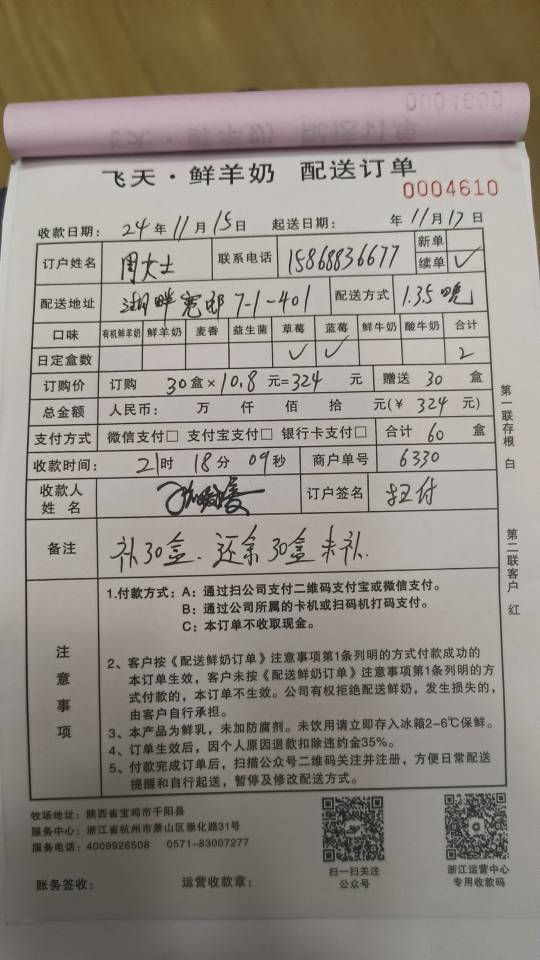 0004609
飞天·鲜羊奶 配送订单
0004610
收款日期: 24年11月15日 起送日期: 年11月17日
订户姓名 周大士 联系电话 15868836677 新单
续单 ✓
配送地址 湖畔宽邸7-1-401 配送方式 1.3.5晚
口味 有机鲜羊奶 鲜羊奶 麦香 益生菌 草莓 蓝莓 鲜牛奶 酸牛奶 合计
日定盒数 ✓ ✓ 2
订购价 订购 30盒×10.8元=324 元 赠送 30 盒
总金额 人民币: 万 仟 佰 拾 元(¥ 324 元)
支付方式 微信支付□ 支付宝支付□ 银行卡支付□ 合计 60 盒
收款时间: 21时 18分 09秒 商户单号 6330
收款人
姓 名 订户签名 扫付
备注 补30盒、还余30盒未补.
注意事项
1.付款方式: A: 通过扫公司支付二维码支付宝或微信支付。
B: 通过公司所属的卡机或扫码机打码支付。
C: 本订单不收取现金。
2、客户按《配送鲜奶订单》注意事项第1条列明的方式付款成功的
本订单生效, 客户未按《配送鲜奶订单》注意事项第1条列明的方
式付款的, 本订单不生效。公司有权拒绝配送鲜奶, 发生损失的,
由客户自行承担。
3、本产品为鲜乳, 未加防腐剂。未饮用请立即存入冰箱2-6℃保鲜。
4、订单生效后, 因个人原因退款扣除违约金35%。
5、付款完成订单后, 扫描公众号二维码关注并注册, 方便日常配送
提醒和自行起送, 暂停及修改配送方式。
第一联存根 白
第二联客户 红
牧场地址: 陕西省宝鸡市千阳县
服务中心: 浙江省杭州市萧山区崇化路31号
服务电话: 4009926508 0571-83007277
扫一扫关注
公众号
浙江运营中心
专用收款码
账务签收: 运营收款章: